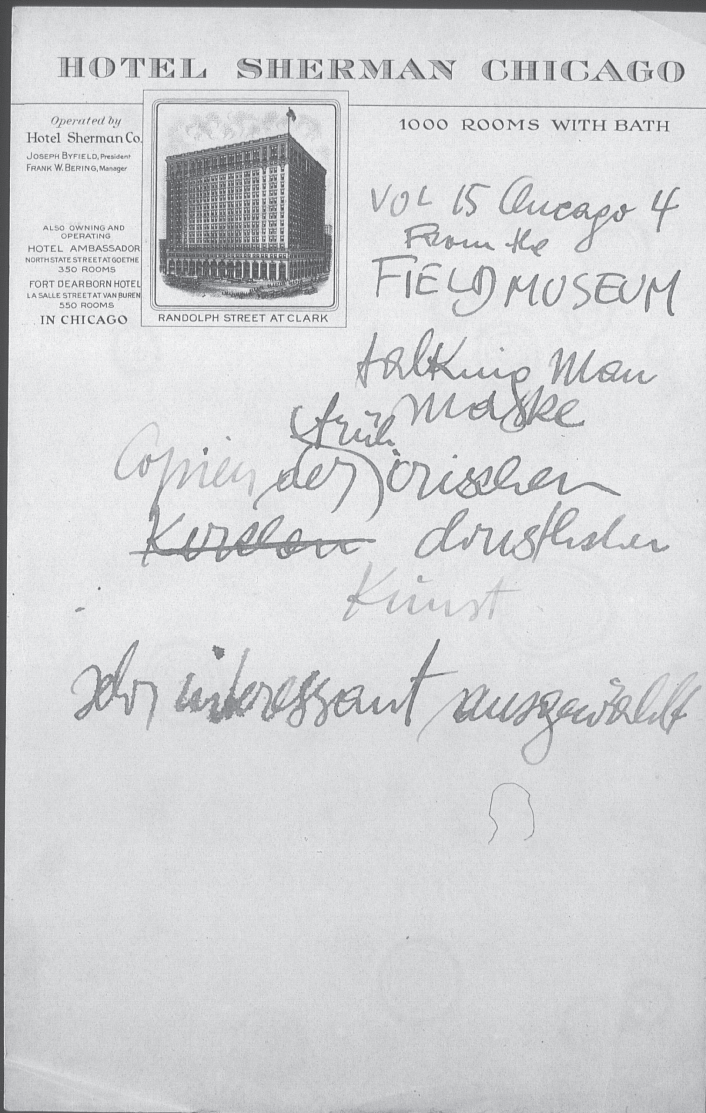 HOTEL SHERMAN CHICAGO
Operated by
Hotel Sherman Co.
JOSEPH BYFIELD, President
FRANK W. BERING, Manager
ALSO OWNING AND
OPERATING
HOTEL AMBASSADOR
NORTH STATE STREET AT GOETHE
350 ROOMS
FORT DEARBORN HOTEL
LA SALLE STREET AT VAN BUREN
550 ROOMS
IN CHICAGO
RANDOLPH STREET AT CLARK
1000 ROOMS WITH BATH
VOL 15 Chicago 4
From the
FIELD MUSEUM
talking Man
Maske
früh
Copien der irischen
christlichen
Kunst
sehr interessant ausgewählt